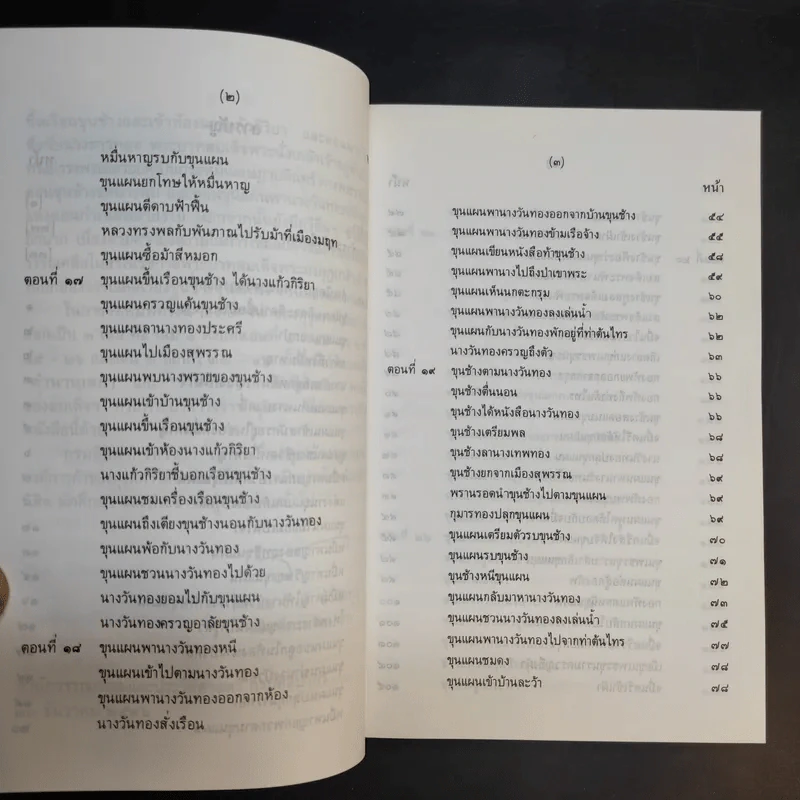 (๒)
หมื่นหาญรบกับขุนแผน
ขุนแผนยกโทษให้หมื่นหาญ
ขุนแผนตีดาบฟ้าฟื้น
หลวงทรงพลกับพันภาณไปรับม้าที่เมืองมฤท
ขุนแผนซื้อม้าสีหมอก
ตอนที่ ๑๗ ขุนแผนขึ้นเรือนขุนช้าง ได้นางแก้วกิริยา
ขุนแผนครวญแค้นขุนช้าง
ขุนแผนลานางทองประศรี
ขุนแผนไปเมืองสุพรรณ
ขุนแผนพบนางพรายของขุนช้าง
ขุนแผนเข้าบ้านขุนช้าง
ขุนแผนขึ้นเรือนขุนช้าง
ขุนแผนเข้าห้องนางแก้วกิริยา
นางแก้วกิริยาชี้บอกเรือนขุนช้าง
ขุนแผนชมเครื่องเรือนขุนช้าง
ขุนแผนถึงเตียงขุนช้างนอนกับนางวันทอง
ขุนแผนพ้อกับนางวันทอง
ขุนแผนชวนนางวันทองไปด้วย
นางวันทองยอมไปกับขุนแผน
นางวันทองครวญอาลัยขุนช้าง
ตอนที่ ๑๘ ขุนแผนพานางวันทองหนี
ขุนแผนเข้าไปตามนางวันทอง
ขุนแผนพานางวันทองออกจากห้อง
นางวันทองสั่งเรือน
(๓)
หน้า
ขุนแผนพานางวันทองออกจากบ้านขุนช้าง ๕๔
ขุนแผนพานางวันทองข้ามเรือจ้าง ๕๕
ขุนแผนเขียนหนังสือท้าขุนช้าง ๕๘
ขุนแผนพานางไปถึงป่าเขาพระ ๕๙
ขุนแผนเห็นนกตะกรุม ๖๐
ขุนแผนพานางวันทองลงเล่นน้ำ ๖๒
ขุนแผนกับนางวันทองพักอยู่ที่ท่าต้นไทร ๖๒
นางวันทองครวญถึงตัว ๖๓
ตอนที่ ๑๙ ขุนช้างตามนางวันทอง ๖๖
ขุนช้างตื่นนอน ๖๖
ขุนช้างได้หนังสือนางวันทอง ๖๖
ขุนช้างเตรียมพล ๖๘
ขุนช้างลานางเทพทอง ๖๘
ขุนช้างยกจากเมืองสุพรรณ ๖๙
พรานรอดนำขุนช้างไปตามขุนแผน ๖๙
กุมารทองปลุกขุนแผน ๖๙
ขุนแผนเตรียมตัวรบขุนช้าง ๗๐
ขุนแผนรบขุนช้าง ๗๑
ขุนช้างหนีขุนแผน ๗๒
ขุนแผนกลับมาหานางวันทอง ๗๓
ขุนแผนชวนนางวันทองลงเล่นน้ำ ๗๕
ขุนแผนพานางวันทองไปจากท่าต้นไทร ๗๗
ขุนแผนชมดง ๗๘
ขุนแผนเข้าบ้านละว้า ๗๘